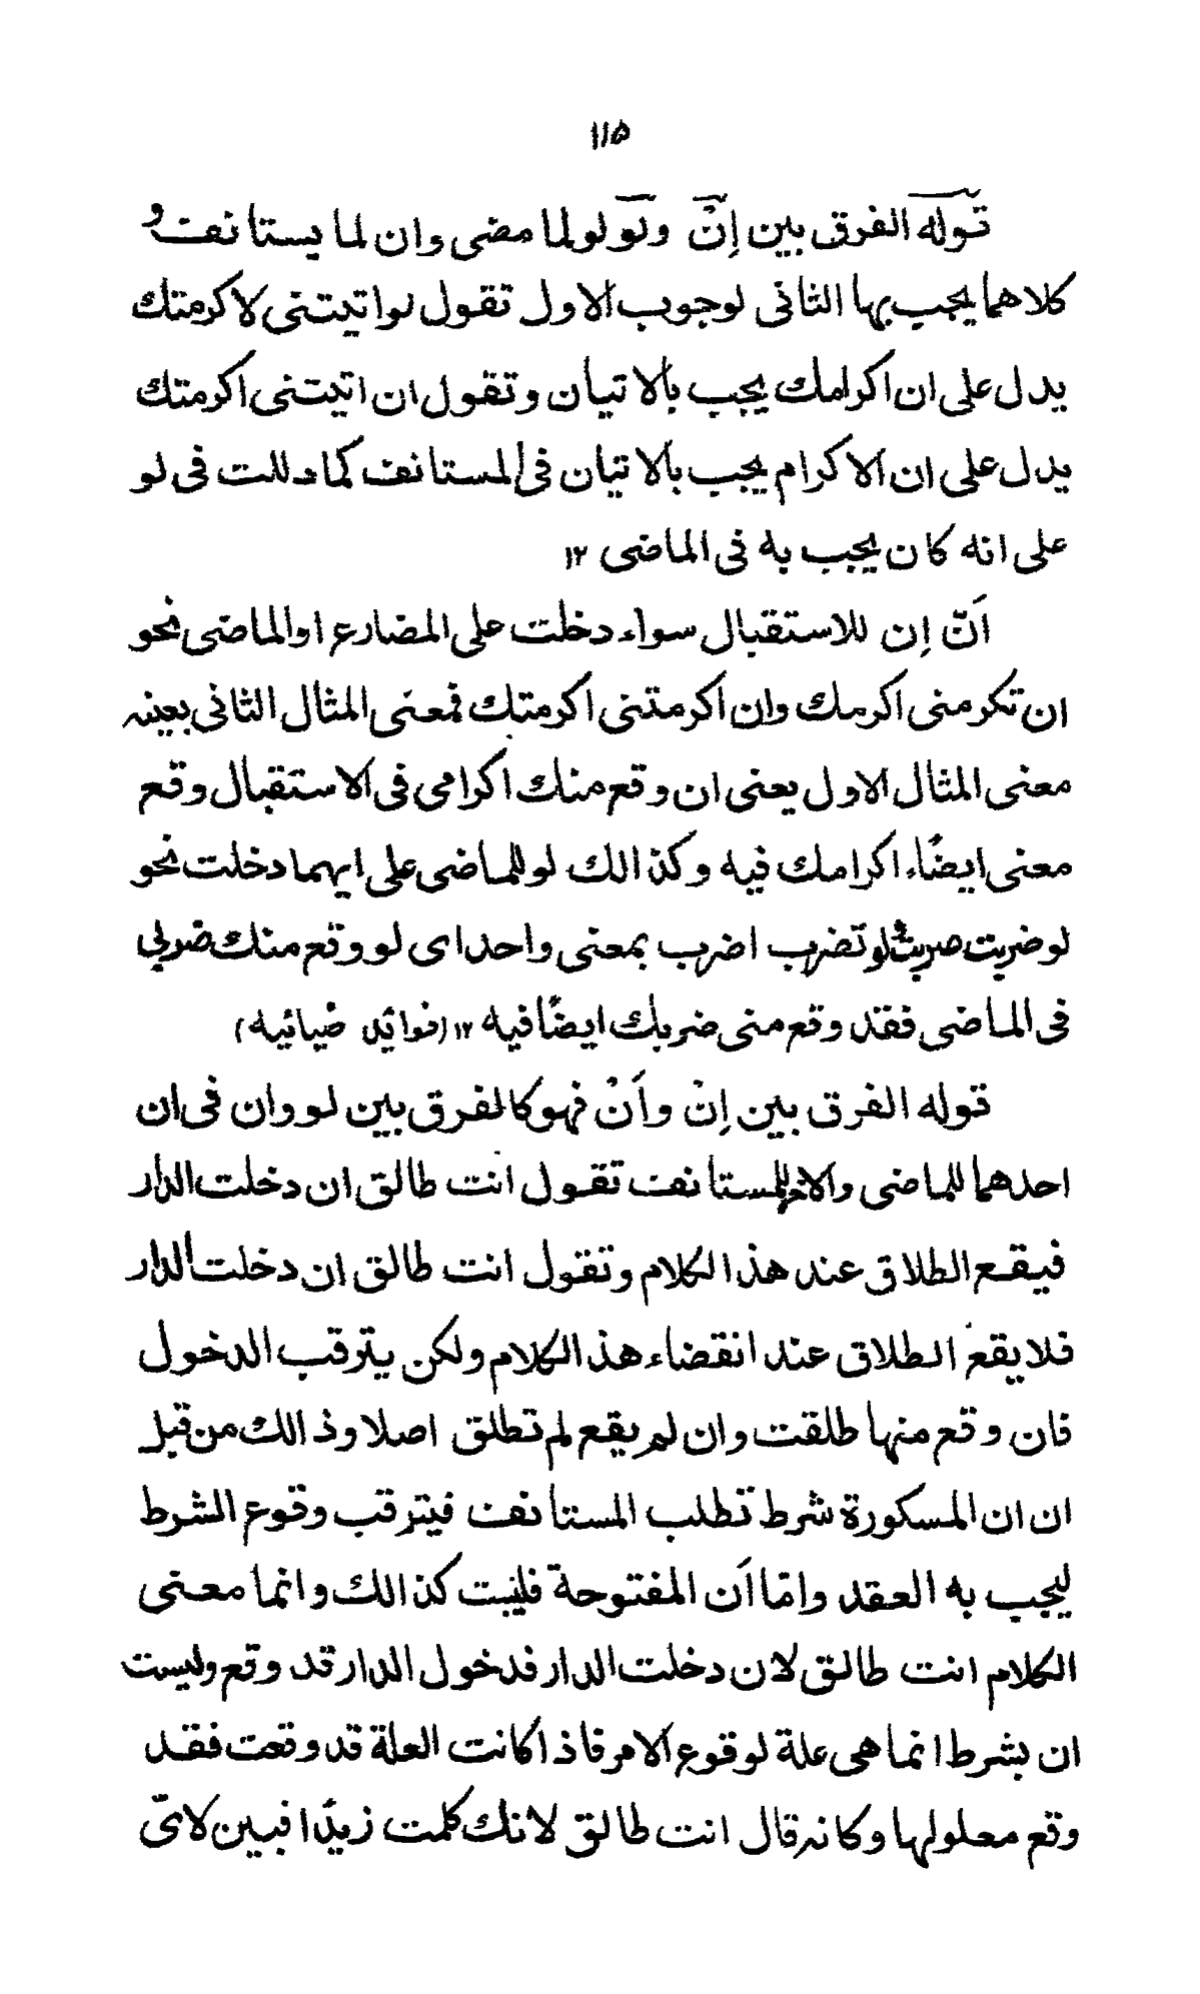 ۱۱۵
قوله الفرق بین إنْ ولَو لو لما مضی وان لما یستانف و
کلاهما یجب بها الثانی لوجوب الاول تقول لو اتیتنی لاکرمتك
یدل علی ان اکرامك یجب بالاتیان وتقول ان اتیتنی اکرمتك
یدل علی ان الاکرام یجب بالاتیان فی المستانف کما دللت فی لو
علی انه کان یجب به فی الماضی ۱۲
اَنّ اِن للاستقبال سواء دخلت علی المضارع او الماضی نحو
ان تکرمنی اکرمك وان اکرمتنی اکرمتك فمعنی المثال الثانی بعینه
معنی المثال الاول یعنی ان وقع منك اکرامی فی الاستقبال وقع
معنی ایضًا اکرامك فیه وکذالك لو للماضی علی ایهما دخلت نحو
لو ضربت ضربت ولو تضرب اضرب بمعنی واحد ای لو وقع منك ضربی
فی الماضی فقد وقع منی ضربك ایضًا فیه ۱۲ (فوائد ضیائیه)
قوله الفرق بین اِنْ واَنْ فهو کالفرق بین لو وان فی ان
احدهما للماضی والاخر للمستانف تقول انت طالق ان دخلت الدار
فیقع الطلاق عند هذا الکلام وتقول انت طالق ان دخلت الدار
فلا یقع الطلاق عند انقضاء هذا الکلام ولکن یترقب الدخول
فان وقع منها طلقت وان لم یقع لم تطلق اصلا وذالك من قبل
ان ان المسکورة شرط تطلب المستانف فیترقب وقوع الشرط
لیجب به العقد وامّا اَن المفتوحة فلیست کذالك وانما معنی
الکلام انت طالق لان دخلت الدار فدخول الدار قد وقع ولیست
ان بشرط انما هی علة لوقوع الامر فاذا کانت العلة قد وقعت فقد
وقع معلولها وکانه قال انت طالق لانك کلمت زیدًا فبین لایّ